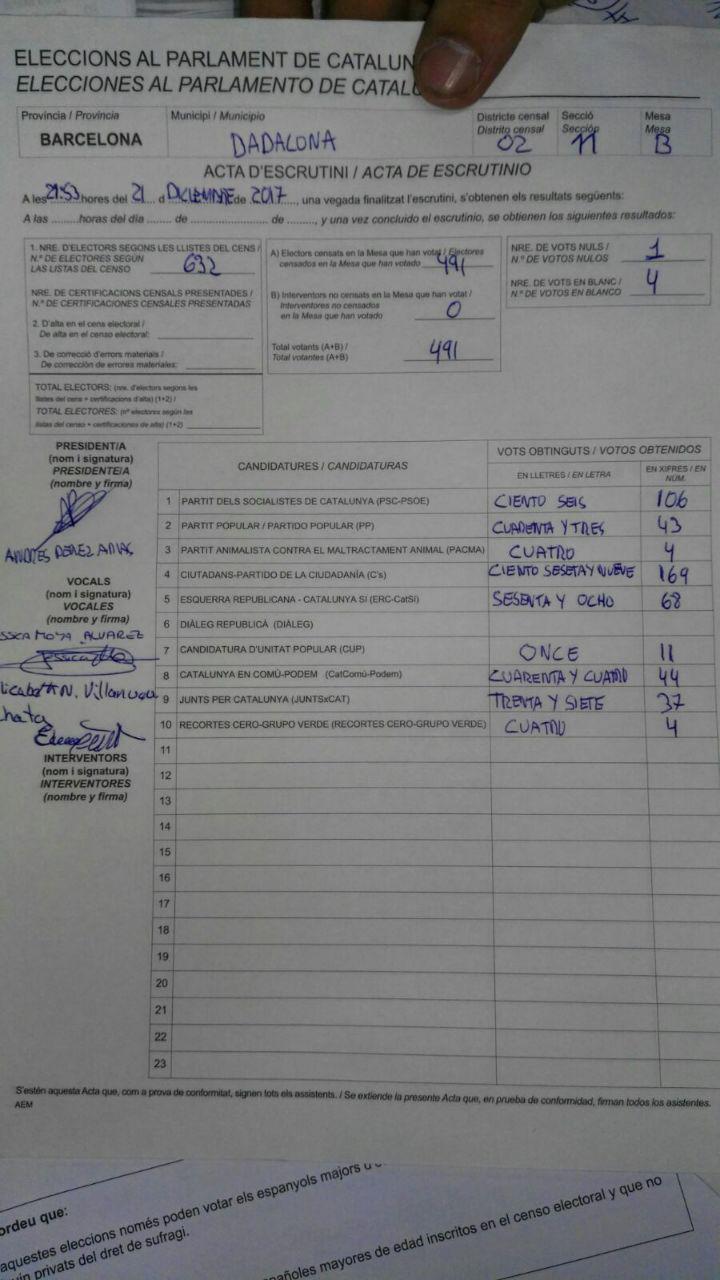 ELECCIONS AL PARLAMENT DE CATALUN
ELECCIONES AL PARLAMENTO DE CATAL
Provincia / Provincia
BARCELONA
Municipi / Municipio
DADALONA
Districte censal
Distrito censal
02
Secció
Sección
11
Mesa
Mesa
B
ACTA D'ESCRUTINI / ACTA DE ESCRUTINIO
A les 21:53 hores del 21 d DICIEMBRE de 2017, una vegada finalitzat l'escrutini, s'obtenen els resultats següents:
A las ......... horas del día ...... de ............................ de ........, y una vez concluido el escrutinio, se obtienen los siguientes resultados:
1. NRE. D'ELECTORS SEGONS LES LLISTES DEL CENS /
N.º DE ELECTORES SEGÚN
LAS LISTAS DEL CENSO 632
NRE. DE CERTIFICACIONS CENSALS PRESENTADES /
N.º DE CERTIFICACIONES CENSALES PRESENTADAS
2. D'alta en el cens electoral /
De alta en el censo electoral:
3. De correcció d'errors materials /
De corrección de errores materiales:
TOTAL ELECTORS: (nre. d'electors segons les
llistes del cens + certificacions d'alta) (1+2) /
TOTAL ELECTORES: (nº electores según las
listas del censo + certificaciones de alta) (1+2)
A) Electors censats en la Mesa que han votat / Electores
censados en la Mesa que han votado 491
B) Interventors no censats en la Mesa que han votat /
Interventores no censados
en la Mesa que han votado 0
Total votants (A+B) /
Total votantes (A+B) 491
NRE. DE VOTS NULS /
N.º DE VOTOS NULOS 1
NRE. DE VOTS EN BLANC /
N.º DE VOTOS EN BLANCO 4
PRESIDENT/A
(nom i signatura)
PRESIDENTE/A
(nombre y firma)
ANDRES PEREZ ARIAS
VOCALS
(nom i signatura)
VOCALES
(nombre y firma)
SSICA MOYA ALVAREZ
licabett N. Villanueva
INTERVENTORS
(nom i signatura)
INTERVENTORES
(nombre y firma)
CANDIDATURES / CANDIDATURAS
VOTS OBTINGUTS / VOTOS OBTENIDOS
EN LLETRES / EN LETRA
EN XIFRES / EN NÚM.
1 PARTIT DELS SOCIALISTES DE CATALUNYA (PSC-PSOE) CIENTO SEIS 106
2 PARTIT POPULAR / PARTIDO POPULAR (PP) CUARENTA Y TRES 43
3 PARTIT ANIMALISTA CONTRA EL MALTRACTAMENT ANIMAL (PACMA) CUATRO 4
4 CIUTADANS-PARTIDO DE LA CIUDADANÍA (C's) CIENTO SESETA Y NUEVE 169
5 ESQUERRA REPUBLICANA - CATALUNYA SÍ (ERC-CatSí) SESENTA Y OCHO 68
6 DIÀLEG REPUBLICÀ (DIÀLEG)
7 CANDIDATURA D'UNITAT POPULAR (CUP) ONCE 11
8 CATALUNYA EN COMÚ-PODEM (CatComú-Podem) CUARENTA Y CUATRO 44
9 JUNTS PER CATALUNYA (JUNTSxCAT) TRENTA Y SIETE 37
10 RECORTES CERO-GRUPO VERDE (RECORTES CERO-GRUPO VERDE) CUATRO 4
11
12
13
14
15
16
17
18
19
20
21
22
23
S'estén aquesta Acta que, com a prova de conformitat, signen tots els assistents. / Se extiende la presente Acta que, en prueba de conformidad, firman todos los asistentes.
AEM
ordeu que:
aquestes eleccions només poden votar els espanyols majors
privats del dret de sufragi.
pañoles mayores de edad inscritos en el censo electoral y que no